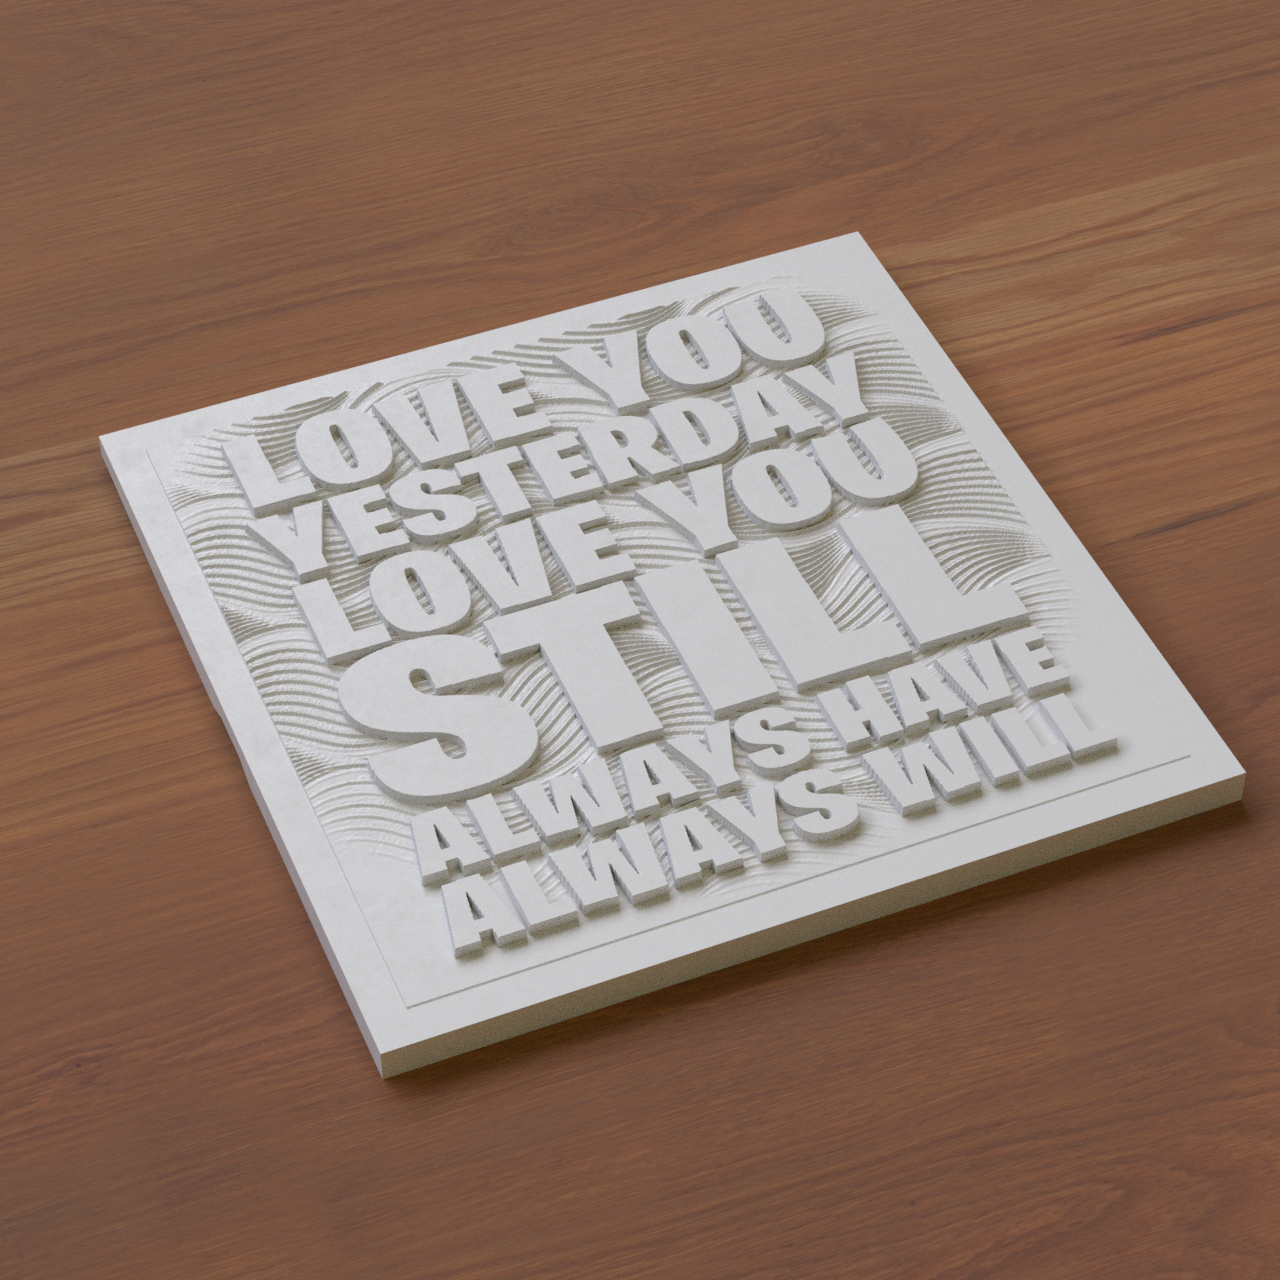 LOVE YOU
YESTERDAY
LOVE YOU
STILL
ALWAYS HAVE
ALWAYS WILL